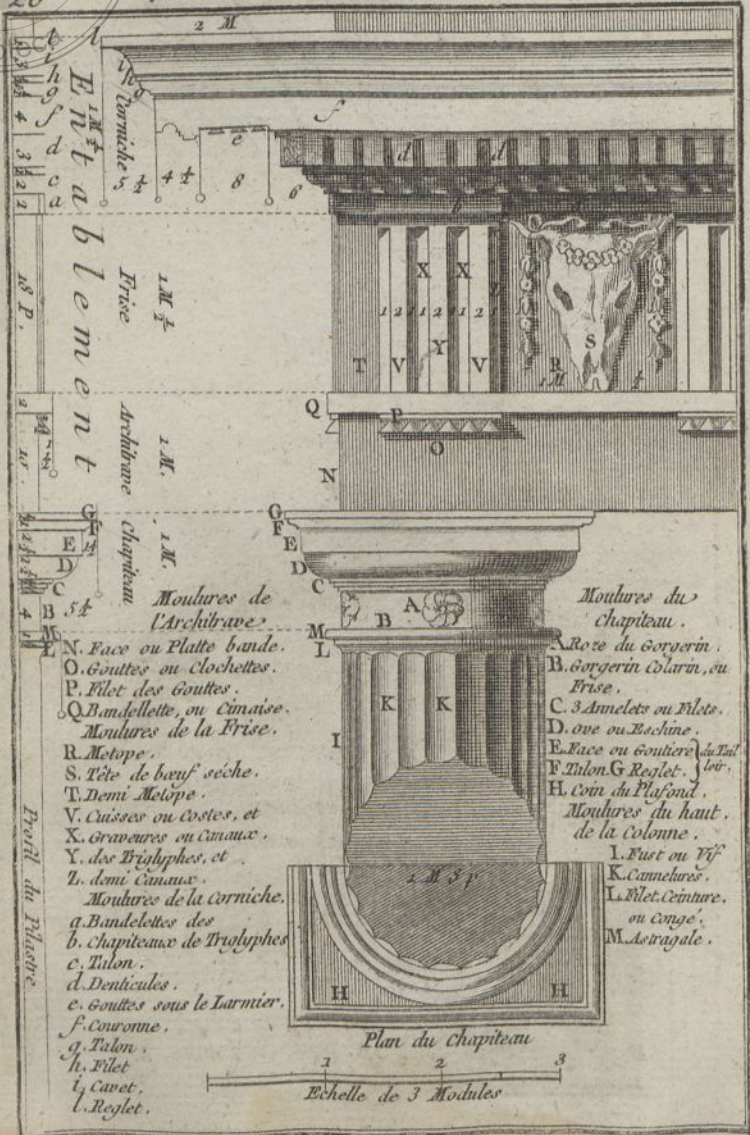 20
2 M
l
i
h
g
f
d
c
a
Entablement
1 M ½
Corniche
5 ½
4 ½
8
6
e
f
d
d
b
18 P.
Frise
1 M ½
X
X
1 2 1 1 2 1 1 2 1
Y
T
V
V
R
1 M ½
S
Architrave
1 M.
Q
P
O
N
Chapiteau
1 M.
G
F
E
D
C
B
5 ¼
M
L
G
F
E
D
C
A
B
M
L
K
K
I
Moulures de
l'Architrave
N. Face ou Platte bande.
O. Gouttes ou Clochettes.
P. Filet des Gouttes.
Q. Bandellette, ou Cimaise.
Moulures de la Frise.
R. Metope.
S. Tête de bœuf séche.
T. Demi Metope.
V. Cuisses ou Costes, et
X. Graveures ou Canaux.
Y. des Triglyphes, et
Z. demi Canaux.
Moulures de la Corniche.
a. Bandelettes des
b. chapiteaux de Triglyphes
c. Talon.
d. Denticules.
e. Gouttes sous le Larmier.
f. Couronne.
g. Talon.
h. Filet
i. Cavet.
l. Reglet.
Profil du Pilastre
Moulures du
chapiteau.
A. Roze du Gorgerin.
B. Gorgerin Colarin, ou
Frise.
C. 3 Annelets ou Filets.
D. ove ou Eschine.
E. Face ou Goutiere
F. Talon. G Reglet.
du Tail
loir.
H. Coin du Plafond.
Moulures du haut
de la Colonne.
I. Fust ou Vif
K. Cannelures.
L. Filet. Ceinture.
ou Congé.
M. Astragale.
1 M 5 p
H
H
Plan du Chapiteau
1 2 3
Echelle de 3 Modules